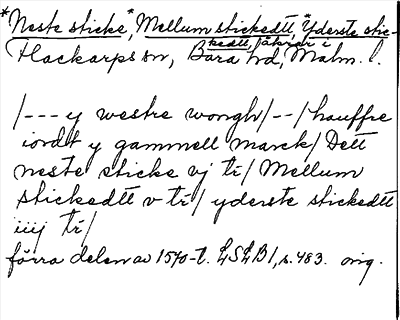 *Neste sticke,* Mellum stickedtt, Yderste stic-
kedtt, åkrar i
Flackarps sn, Bara hd, Malm. l.
/--- y westre wongh/--/hauffre
iordt y gammell marck/ Dett
neste sticke vj tr/ Mellum
stickedtt v tr/ yderste stickedtt
iiij tr/
förra delen av 1570-t. LSLB 1, s. 483. orig.